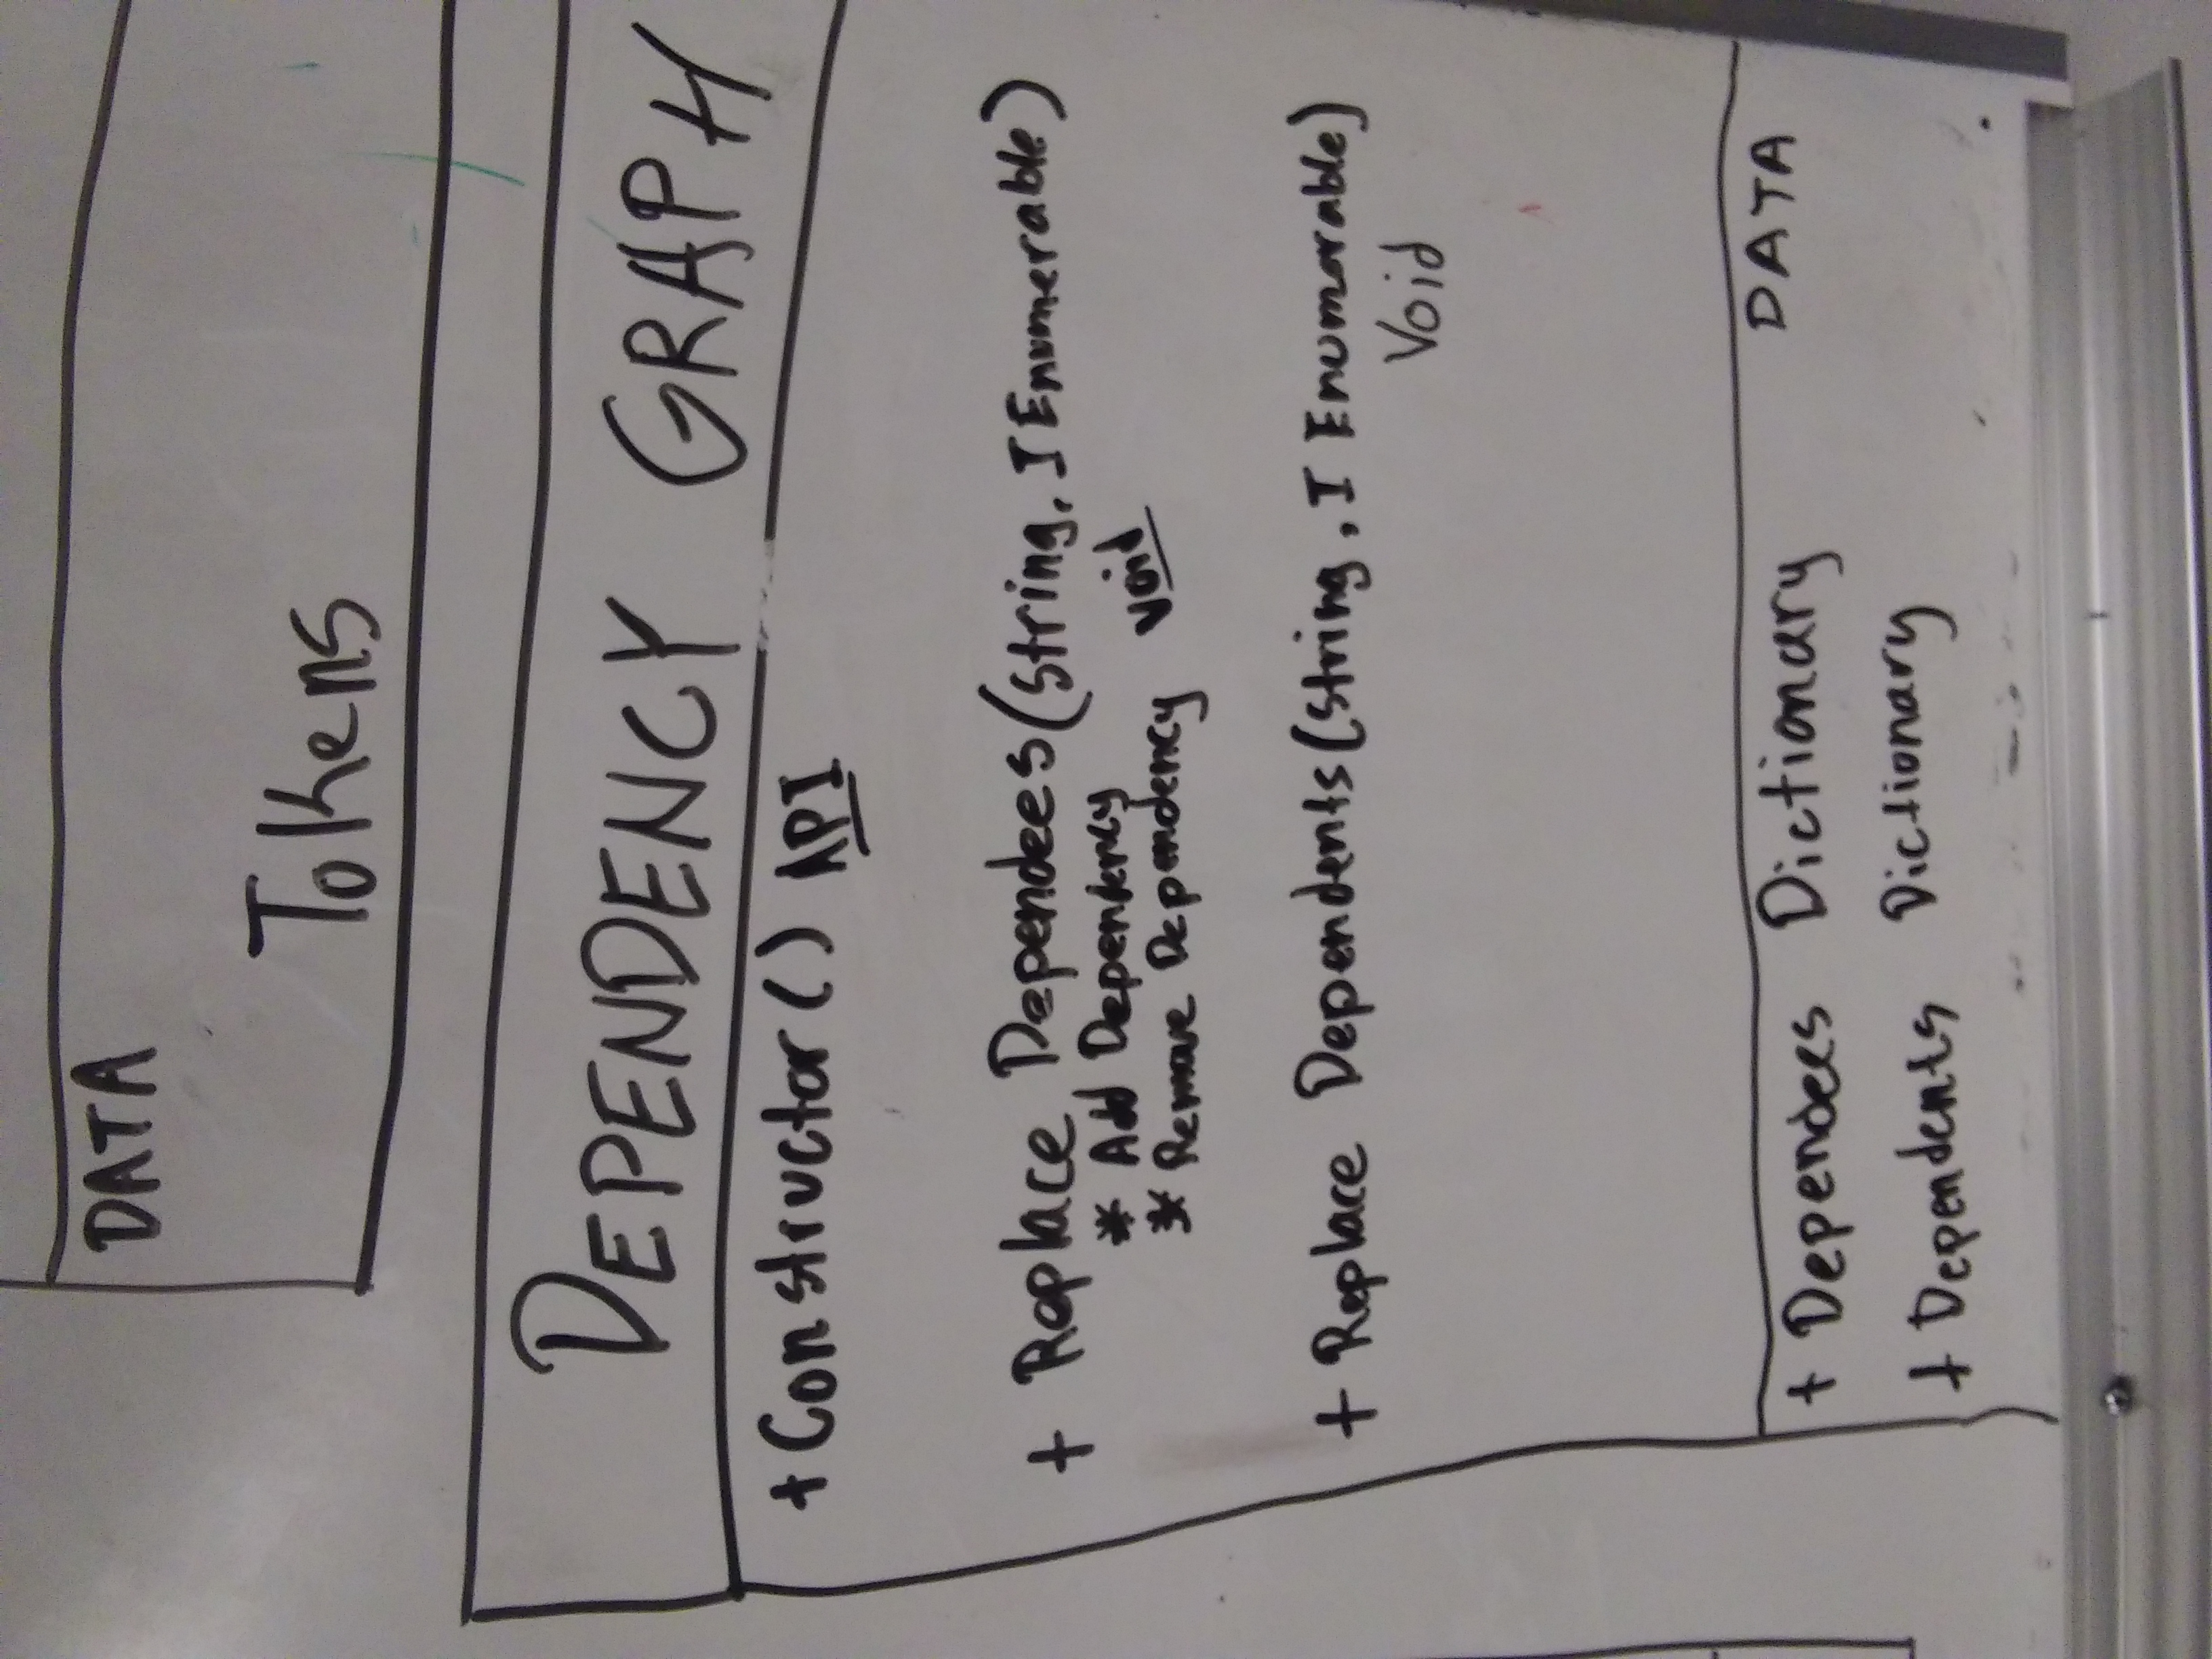 DATA
Tokens
DEPENDENCY GRAPH
+ Constructor() API
+ Replace Dependees(String, IEnumerable)
* Add Dependency
* Remove Dependency void
+ Replace Dependents(String, I Enumorable)
Void
DATA
+ Dependees Dictionary
+ Dependents Dictionary